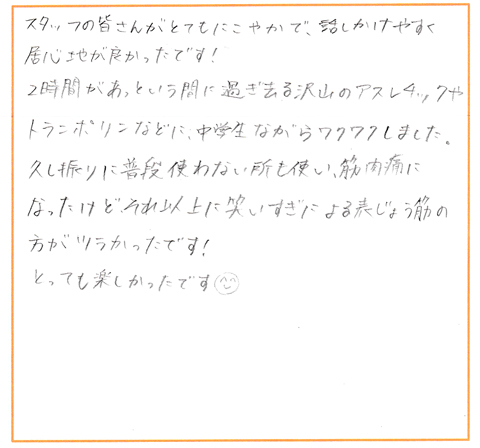 スタッフの皆さんがとてもにこやかで、話しかけやすく
居心地が良かったです!
2時間があっという間に過ぎ去る沢山のアスレチックや
トランポリンなどに、中学生ながらワクワクしました。
久し振りに普段使わない所も使い、筋肉痛に
なったけど、それ以上に笑いすぎによる表じょう筋の
方がツラかったです!
とっても楽しかったです